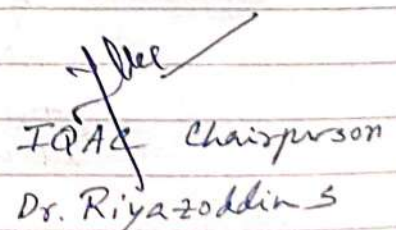 IQAC Chairperson
Dr. Riyazoddin S